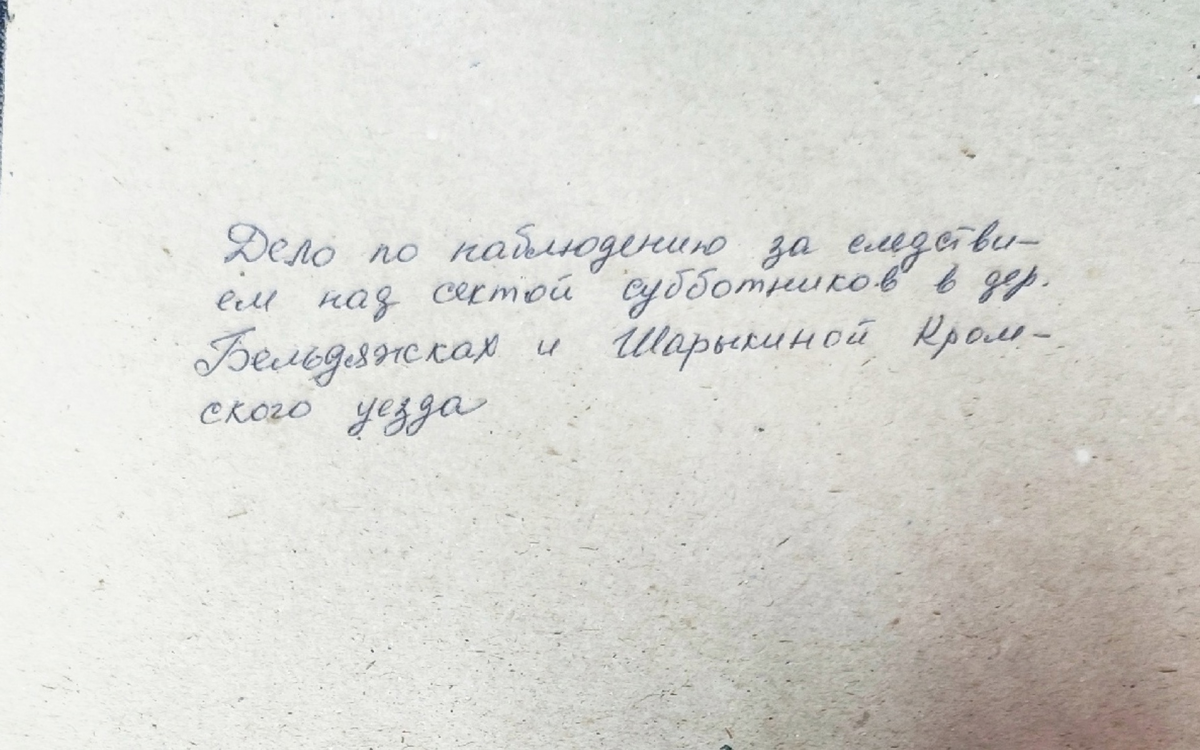 Дело по наблюдению за следстви-
ем над сектой субботников в дер.
Бельдяжсках и Шарыкиной Кром-
ского уезда